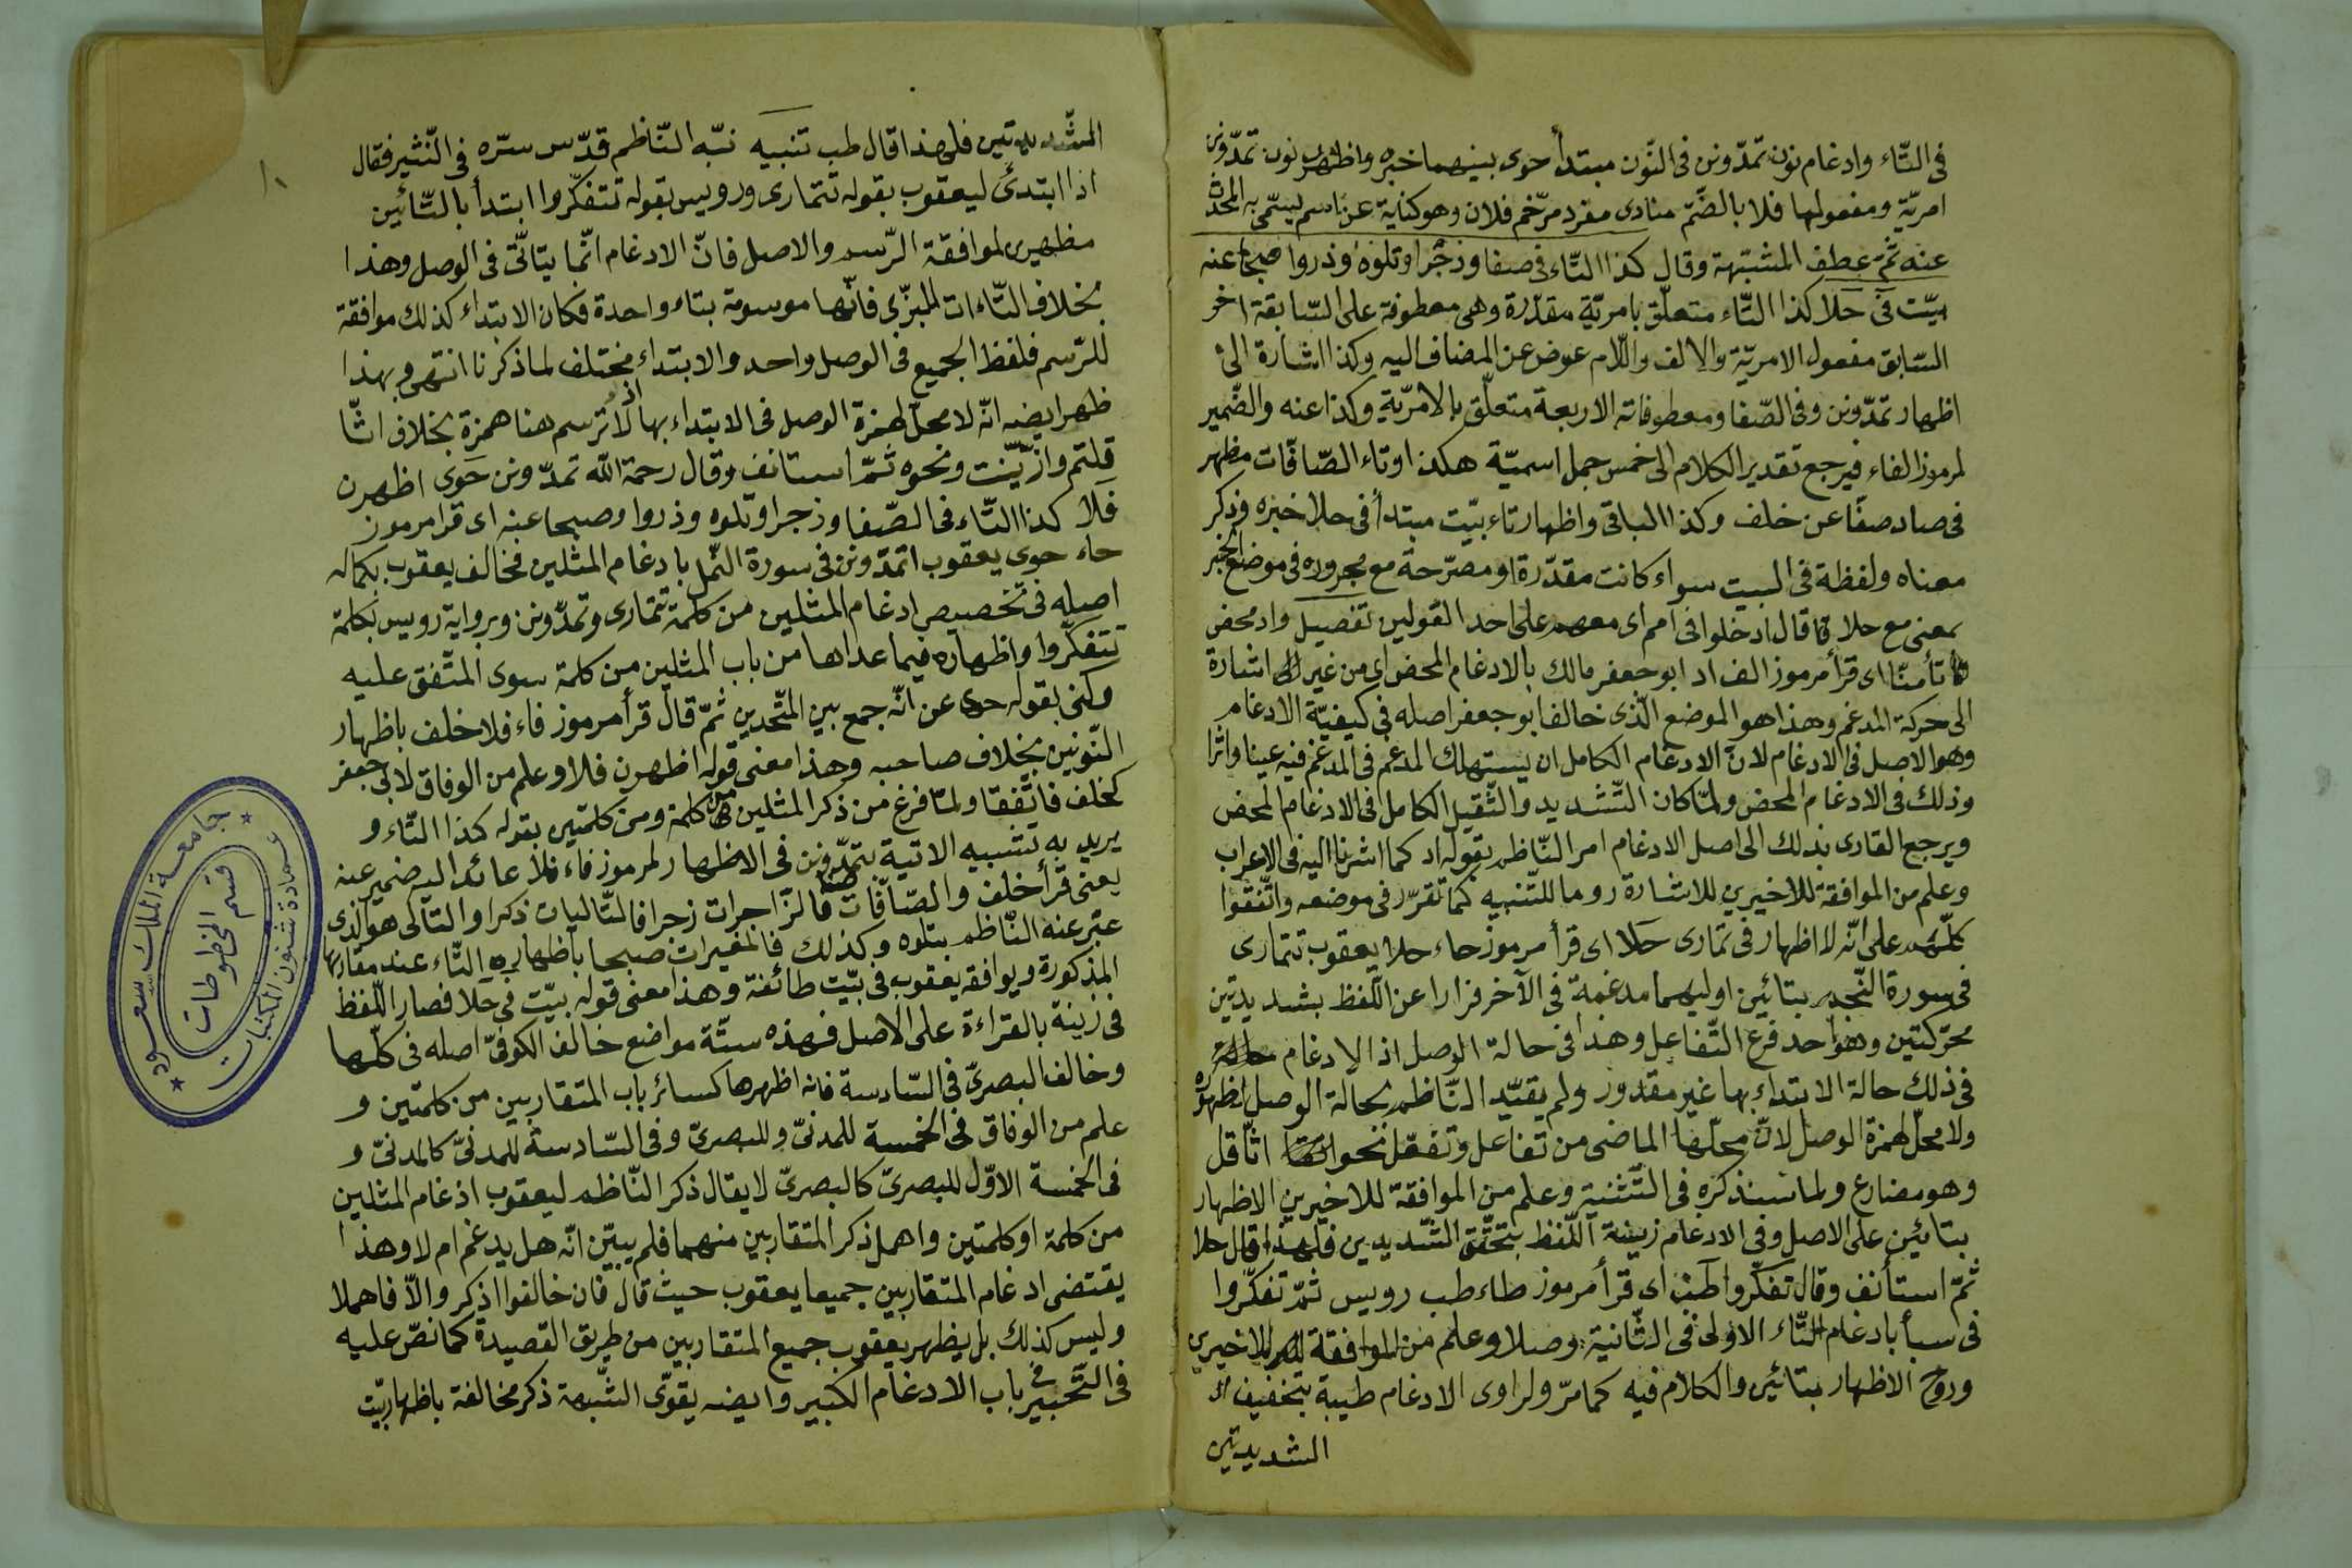 فى التّاء وادغام نون تمدّونن فى النّون مبتدأ حوى بينهما خبره واظهرن نون تمدّونن
امريّة ومفعولها فلا بالضّمّ منادى مفرد مرخّم فلان وهو كناية عن اسم يسمّى به المحدّث
عنه ثمّ عطف المشبّهة وقال كذا التّاء فى صفا وزجرا وتلوه وذروا صبحا عنه
بيّت فى حلا كذا التّاء متعلّق بامريّة مقدّرة وهى معطوفة على السّابقة اخر
السّابق مفعول الامريّة والالف واللّام عوض عن المضاف اليه وكذا اشارة الى
اظهار تمدّونن وفى الصّفا ومعطوفاته الاربعة متعلّق بالامريّة وكذا عنه والضّمير
لمرموز الفاء فيرجع تقدير الكلام الى خمس جمل اسميّة هكذا وتاء الصّافّات مظهر
فى صاد صفّا عن خلف وكذا الباقى واظهار تاء بيّت مبتدأ فى حلا خبره وذكر
معناه ولفظة فى البيت سواء كانت مقدّرة او مصرّحة مع مجروره فى موضع الخبر
بمعنى مع حلا قال ادخلوا فى امم اى معهم على احد القولين تفصيل واد محض
تأمنّا اى قرأ مرموز الف اد ابو جعفر مالك بالادغام المحض اى من غير اشارة
الى حركة المدغم وهذا هو الموضع الّذى خالف ابو جعفر اصله فى كيفيّة الادغام
وهو الاصل فى الادغام لانّ الادغام الكامل ان يستهلك المدغم فى المدغم فيه عينا واثرا
وذلك فى الادغام المحض ولمّا كان التّشديد والثّقيل الكامل فى الادغام المحض
ويرجع القارى بذلك الى اصل الادغام امر النّاظم بقوله اد كما اشرنا اليه فى الاعراب
وعلم من الموافقة للاخيرين للاشارة روما للتّنبيه كما تقرّر فى موضعه واتّفقوا
كلّهم على انّه لا اظهار فى تمارى حلا اى قرأ مرموز حاء حلا يعقوب تتمارى
فى سورة النّجم بتائين اوليهما مدغمة فى الآخر فرارا عن اللّفظ بشديدتين
محرّكتين وهو احد فرع التّفاعل وهذا فى حالة الوصل اذ الادغام
فى ذلك حالة الابتداء بها غير مقدور ولم يقيّد النّاظم بحالة الوصل لظهوره
ولا محلّ لهمزة الوصل لانّ محلّها الماضى من تفاعل وتفعّل نحو اثّاقل
وهو مضارع ولما سنذكره فى التّثنية وعلم من الموافقة للاخيرين الاظهار
بتائين على الاصل وفى الادغام زينة اللّفظ بتحقّق الشّديدين فلهذا قال حلا
ثمّ استأنف وقال تفكّروا طب اى قرأ مرموز طاء طب رويس ثمّ تفكّروا
فى سبأ بادغام التّاء الاولى فى الثّانية وصلا وعلم من الموافقة للاخيرين
وروح الاظهار بتائين والكلام فيه كما مرّ ولراوى الادغام طيبة بتخفيف
الشديدتين
المشّديدتين فلهذا قال طب تنبيه نبّه النّاظم قدّس سرّه فى النّشر فقال
اذا ابتدئ ليعقوب بقوله تتمارى ورويس بقوله تتفكّروا ابتدأ بالتّائين
مظهرين لموافقة الرّسم والاصل فانّ الادغام انّما يتأتّى فى الوصل وهذا
بخلاف التّاءات للبزّى فانّها مرسومة بتاء واحدة فكان الابتداء كذلك موافقة
للرّسم فلفظ الجميع فى الوصل واحد والابتداء مختلف لما ذكرنا انتهى وبهذا
ظهر ايضه انّه لا محلّ لهمزة الوصل فى الابتداء بها اذ لا ترسم هنا همزة بخلاف اثّا
قلتم وازّيّنت ونحوه ثمّ استانف وقال رحمة الله تمدّونن حوى اظهرن
فلا كذا التّاء فى الصّفا وزجرا وتلوه وذروا وصبحا عنه اى قرأ مرموز
حاء حوى يعقوب اتمدّونن فى سورة النّمل بادغام المثلين فخالف يعقوب بكماله
اصله فى تخصيص ادغام المثلين من كلمة تتمارى وتمدّونن وبرواية رويس بكلمة
تتفكّروا واظهاره فيما عداها من باب المثلين من كلمة سوى المتّفق عليه
وكنى بقوله حوى عن انّه جمع بين المتّحدين ثمّ قال قرأ مرموز فاء فلا خلف باظهار
النّونين بخلاف صاحبه وهذا معنى قوله اظهرن فلا وعلم من الوفاق لابى جعفر
كخلف فاتّفقا ولمّا فرغ من ذكر المثلين من كلمة ومن كلمتين بقوله كذا التّاء و
يريد به تشبيه الاتية بتمدّونن فى الاظهار لمرموز فاء فلا عائد اليه ضمير عنه
يعنى قرأ خلف والصّافّات صفّا فالزّاجرات زجرا فالتّاليات ذكرا والتّالى هو الّذى
عبّر عنه النّاظم بتلوه وكذلك فالمغيرات صبحا باظهار التّاء عند مقاربها
المذكورة ويوافقه يعقوب فى بيّت طائفة وهذا معنى قوله بيّت فى حلا فصار اللّفظ
فى زينة بالقراءة على الاصل فهذه ستّة مواضع خالف الكوفىّ اصله فى كلّها
وخالف البصرىّ فى السّادسة فانه اظهرها كسائر باب المتقاربين من كلمتين و
علم من الوفاق فى الخمسة للمدنىّ وللبصرىّ وفى السّادسة للمدنىّ كالمدنىّ و
فى الخمسة الاوّل للبصرىّ كالبصرىّ لا يقال ذكر النّاظم ليعقوب ادغام المثلين
من كلمة او كلمتين واهمل ذكر المتقاربين منهما فلم يبيّن انّه هل يدغم ام لا وهذا
يقتضى ادغام المتقاربين جميعا يعقوب حيث قال فان خالفوا اذكر والّا فاهملا
وليس كذلك بل يظهر يعقوب جميع المتقاربين من طريق القصيدة كما نصّ عليه
فى التّحبير فى باب الادغام الكبير وايضه يقوّى الشّبهة ذكر مخالفة باظهار بيّت
١٠
جامعة الملك سعود
عمادة شئون المكتبات
قسم المخطوطات